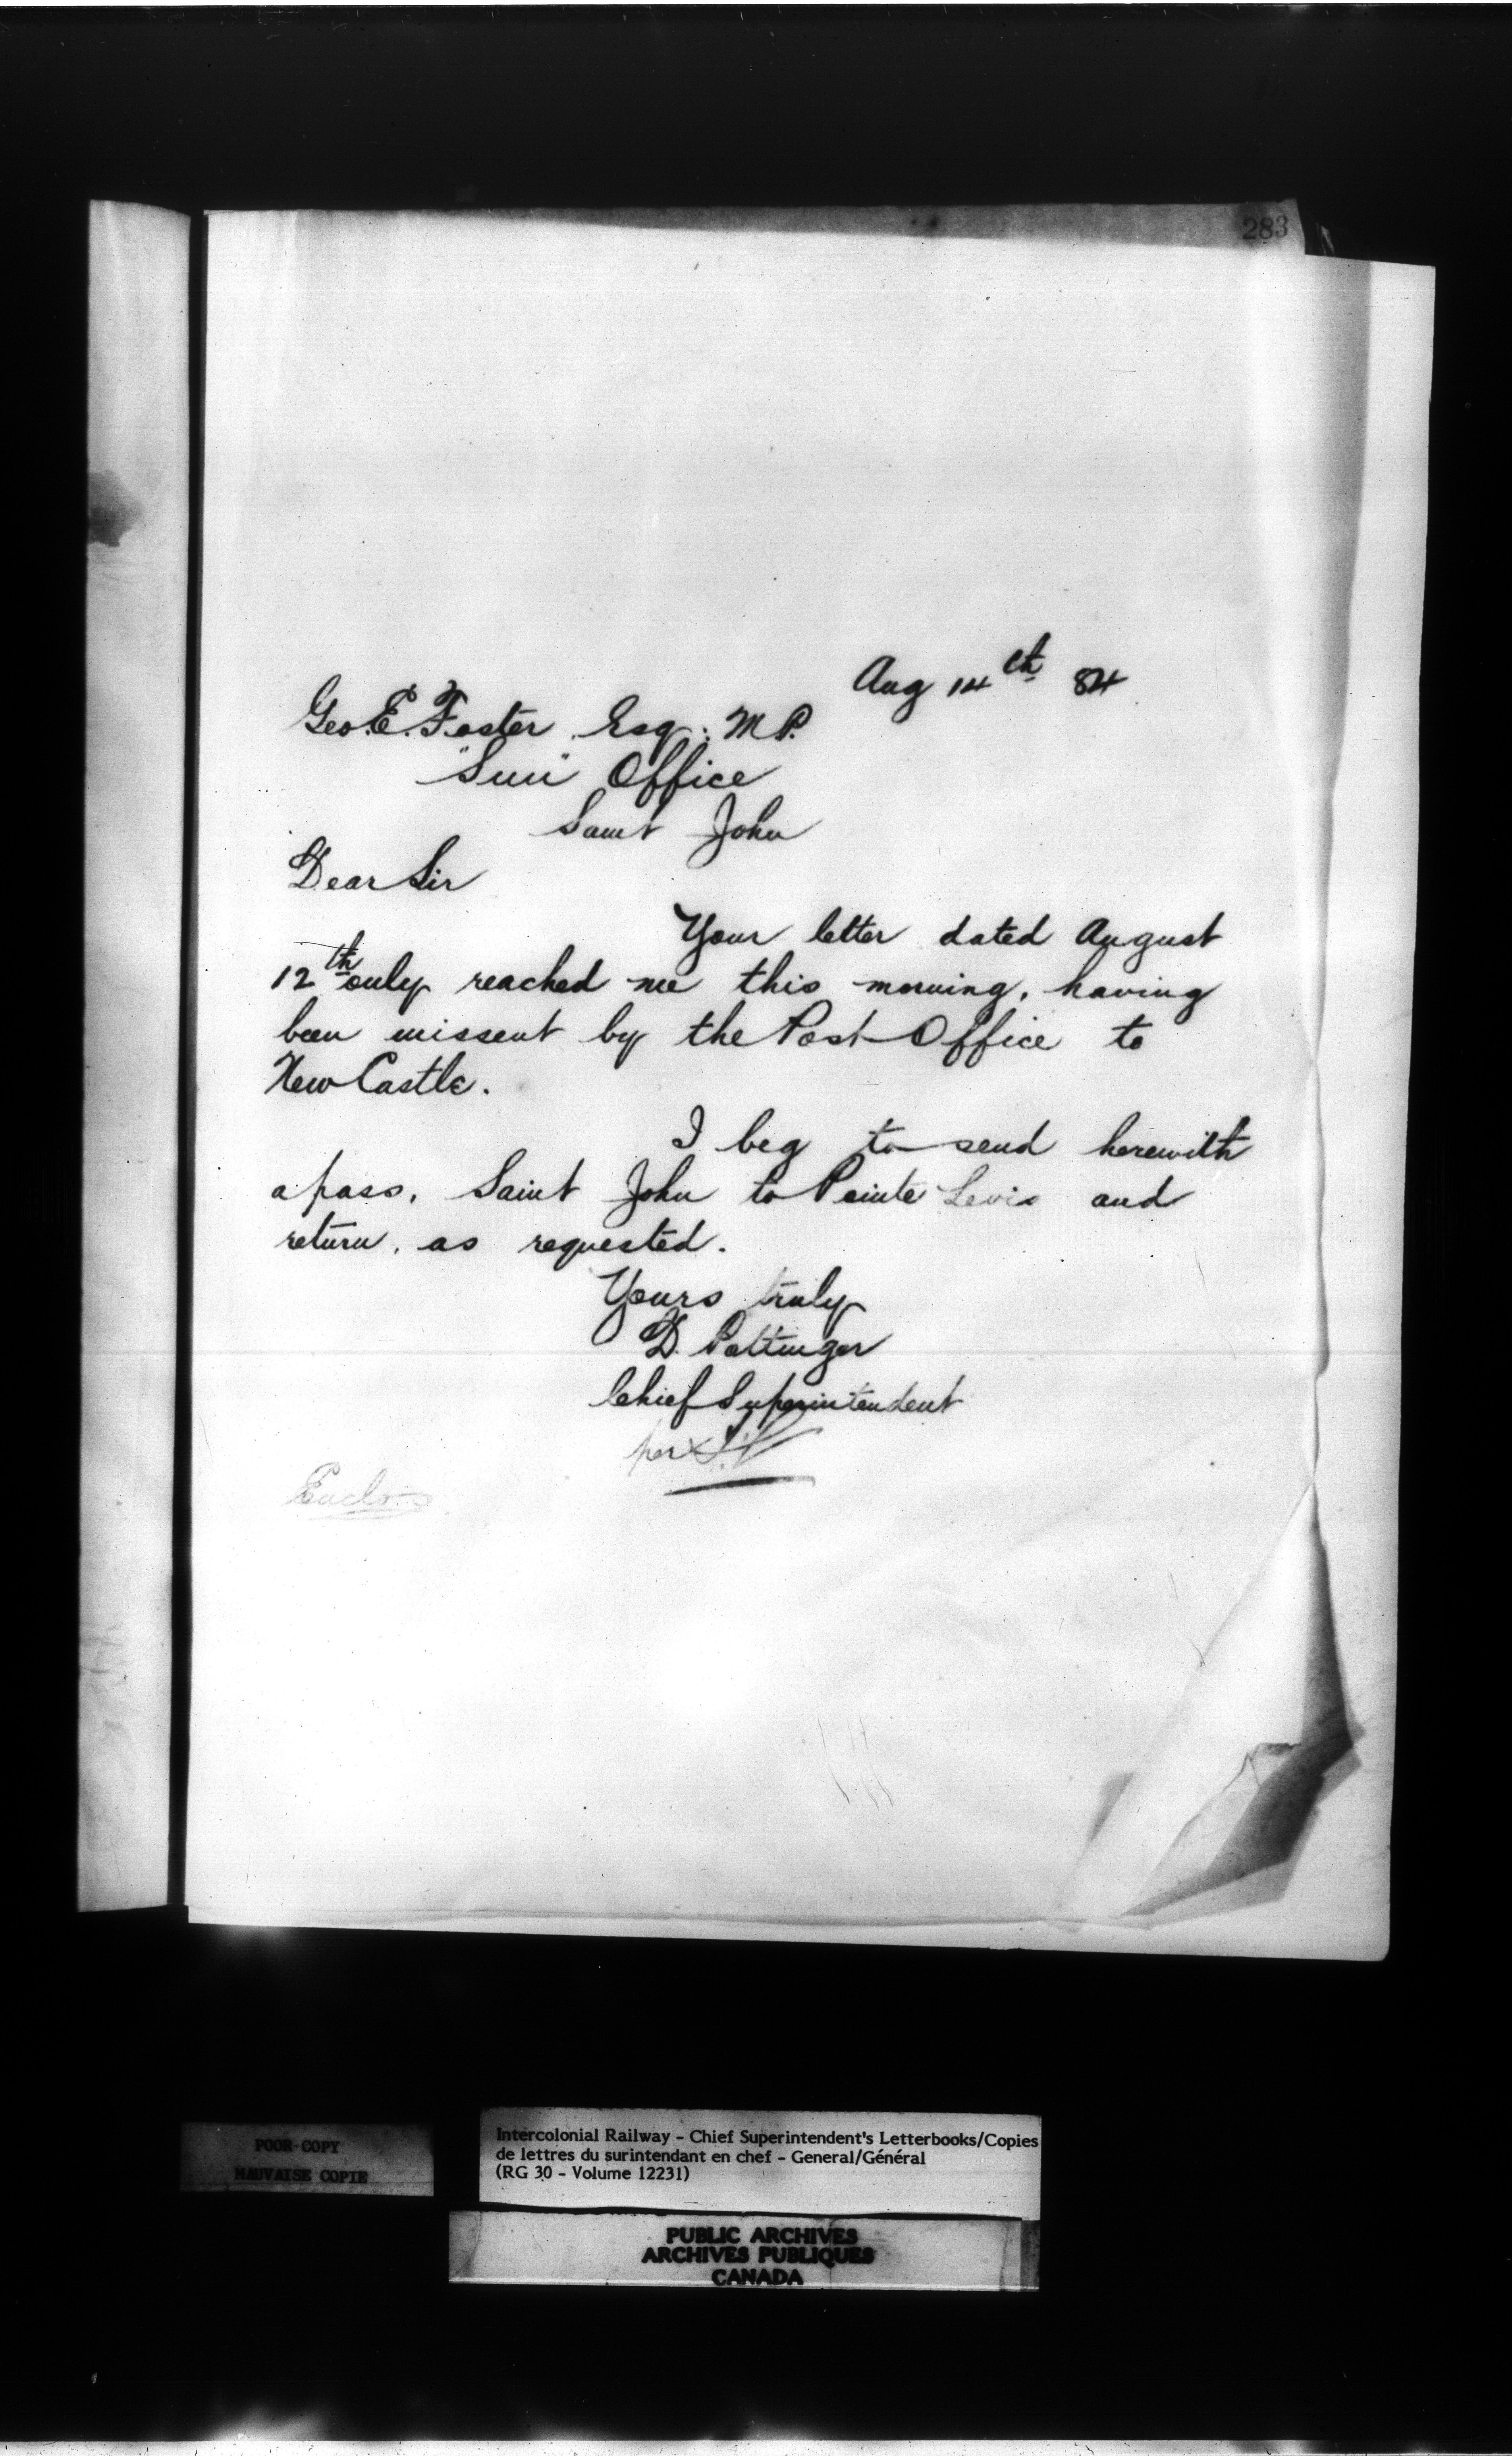 283
Aug 14th 84
Geo. E. Foster Esq: M.P.
"Sun" Office
Saint John
Dear Sir
Your letter dated August
12th only reached me this morning, having
been missent by the Post Office to
New Castle.
I beg to send herewith
a pass, Saint John to Pointe Levis and
return, as requested.
Yours truly
D. Pottinger
Chief Superintendent
per
Enclo:
POOR COPY
MAUVAISE COPIE
Intercolonial Railway - Chief Superintendent's Letterbooks/Copies
de lettres du surintendant en chef - General/Général
(RG 30 - Volume 12231)
PUBLIC ARCHIVES
ARCHIVES PUBLIQUES
CANADA